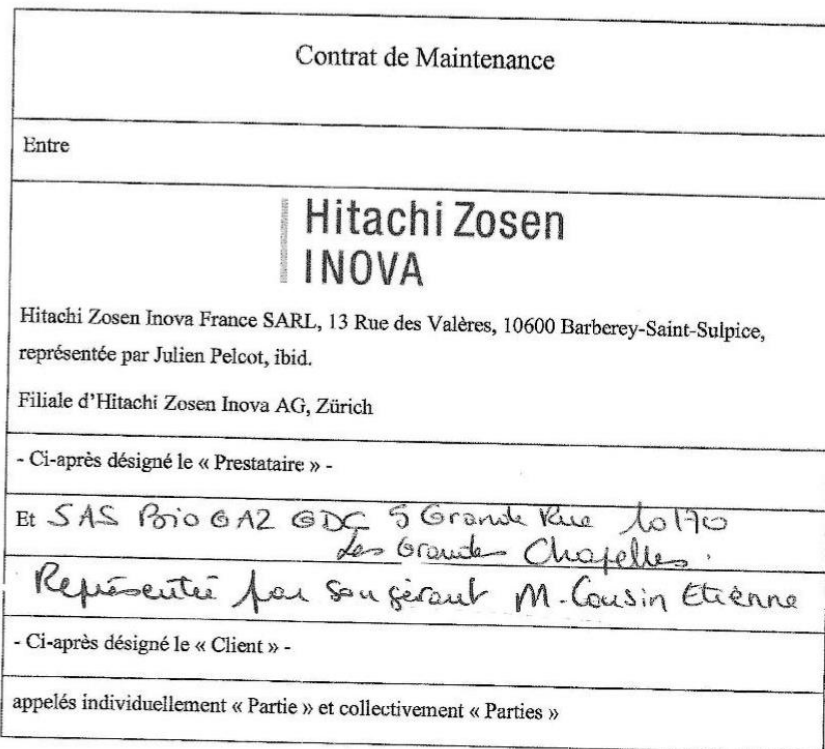 Contrat de Maintenance
Entre
Hitachi Zosen
INOVA
Hitachi Zosen Inova France SARL, 13 Rue des Valères, 10600 Barberey-Saint-Sulpice,
représentée par Julien Pelcot, ibid.
Filiale d'Hitachi Zosen Inova AG, Zürich
- Ci-après désigné le « Prestataire » -
Et SAS BioGAZ GDC 5 Grande Rue 10170
Les Grandes Chapelles.
Représentée par son gérant M. Cousin Etienne
- Ci-après désigné le « Client » -
appelés individuellement « Partie » et collectivement « Parties »